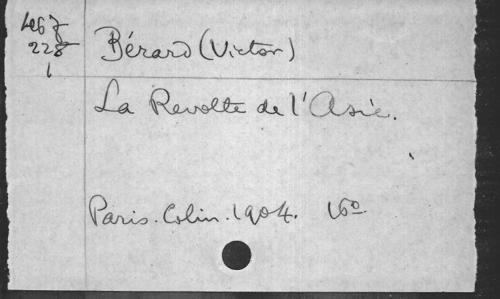 467
228
1
Bérard (Victor)
La Revolte de l'Asie.
Paris. Colin. 1904. 16º